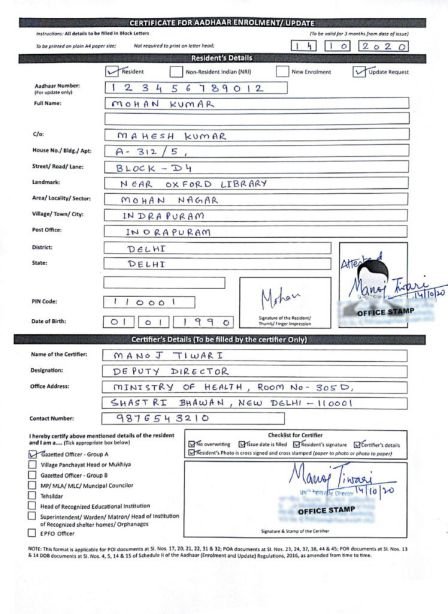 CERTIFICATE FOR AADHAAR ENROLMENT/ UPDATE
Instructions: All details to be filled in Block Letters (To be valid for 3 months from date of issue)
To be printed on plain A4 paper size; Not required to print on letter head; 14 10 2020
Resident's Details
Resident Non-Resident Indian (NRI) New Enrolment Update Request
Aadhaar Number: 123456789012
(For update only)
Full Name: MOHAN KUMAR
C/o: MAHESH KUMAR
House No./ Bldg./ Apt: A-312/5,
Street/ Road/ Lane: BLOCK-D4
Landmark: NEAR OXFORD LIBRARY
Area/ Locality/ Sector: MOHAN NAGAR
Village/ Town/ City: INDRAPURAM
Post Office: INDRAPURAM
District: DELHI
State: DELHI
Attested
Manoj Tiwari
14/10/20
OFFICE STAMP
Mohan
Signature of the Resident/
Thumb/ Finger Impression
PIN Code: 110001
Date of Birth: 01 01 1990
Certifier's Details (To be filled by the certifier Only)
Name of the Certifier: MANOJ TIWARI
Designation: DEPUTY DIRECTOR
Office Address: MINISTRY OF HEALTH, ROOM No-305D,
SHASTRI BHAWAN, NEW DELHI-110001
Contact Number: 9876543210
I hereby certify above mentioned details of the resident
and I am a.... (Tick appropriate box below)
Gazetted Officer - Group A
Village Panchayat Head or Mukhiya
Gazetted Officer - Group B
MP/ MLA/ MLC/ Muncipal Councilor
Tehsildar
Head of Recognized Educational Institution
Superintendent/ Warden/ Matron/ Head of Institution
of Recognized shelter homes/ Orphanages
EPFO Officer
Checklist for Certifier
No overwriting Issue date is filled Resident's signature Certifier's details
Resident's Photo is cross signed and cross stamped (paper to photo or photo to paper)
Manoj Tiwari
14/10/20
OFFICE STAMP
Signature & Stamp of the Certifier
NOTE: This format is applicable for POI documents at Sl. Nos. 17, 20, 21, 22, 31 & 32; POA documents at Sl. Nos. 23, 24, 37, 38, 44 & 45; POR documents at Sl. Nos. 13
& 14 DOB documents at Sl. Nos. 4, 5, 14 & 15 of Schedule II of the Aadhaar (Enrolment and Update) Regulations, 2016, as amended from time to time.